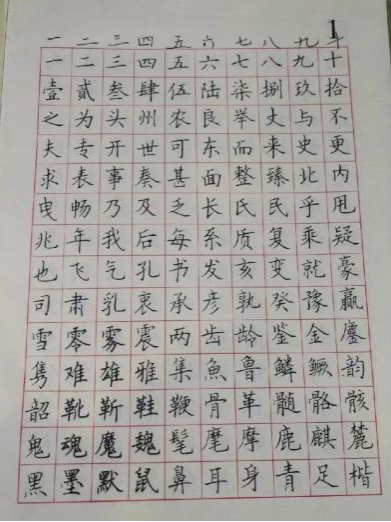 1
一二三四五六七八九十
一二三四五六七八九十
壹贰叁肆伍陆柒捌玖拾
之为头州农良举丈与不
夫专开世可东而来史更
求表事奏甚面整臻北内
曳畅乃及乏长氏民乎甩
兆年我后每系质复乘疑
也飞气孔书发亥变就豪
司肃乳衷承彦孰癸豫赢
雪零雾震两齿龄鉴金鏖
隽难雄雅集魚鲁鳞鳜韵
韶靴靳鞋鞭骨革髓骼骸
鬼魂魔魏髦麾摩鹿麒麓
黑墨默鼠鼻耳身青足楷